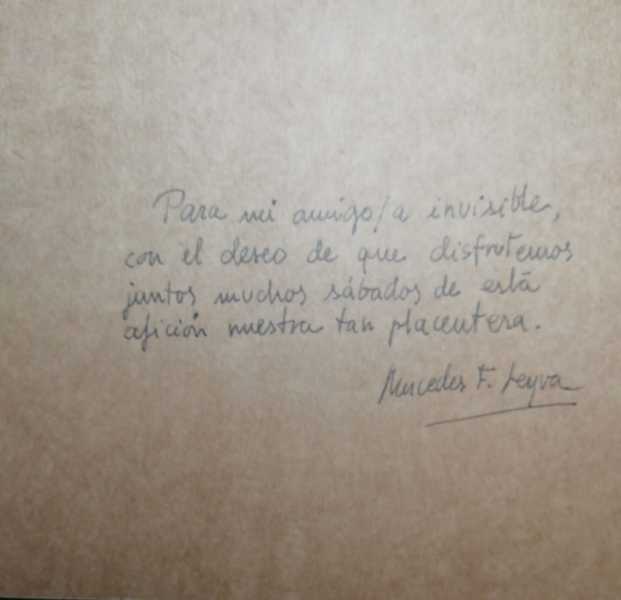 Para mi amigo/a invisible,
con el deseo de que disfrutemos
juntos muchos sábados de está
afición nuestra tan placentera.
Mercedes F. Leyva